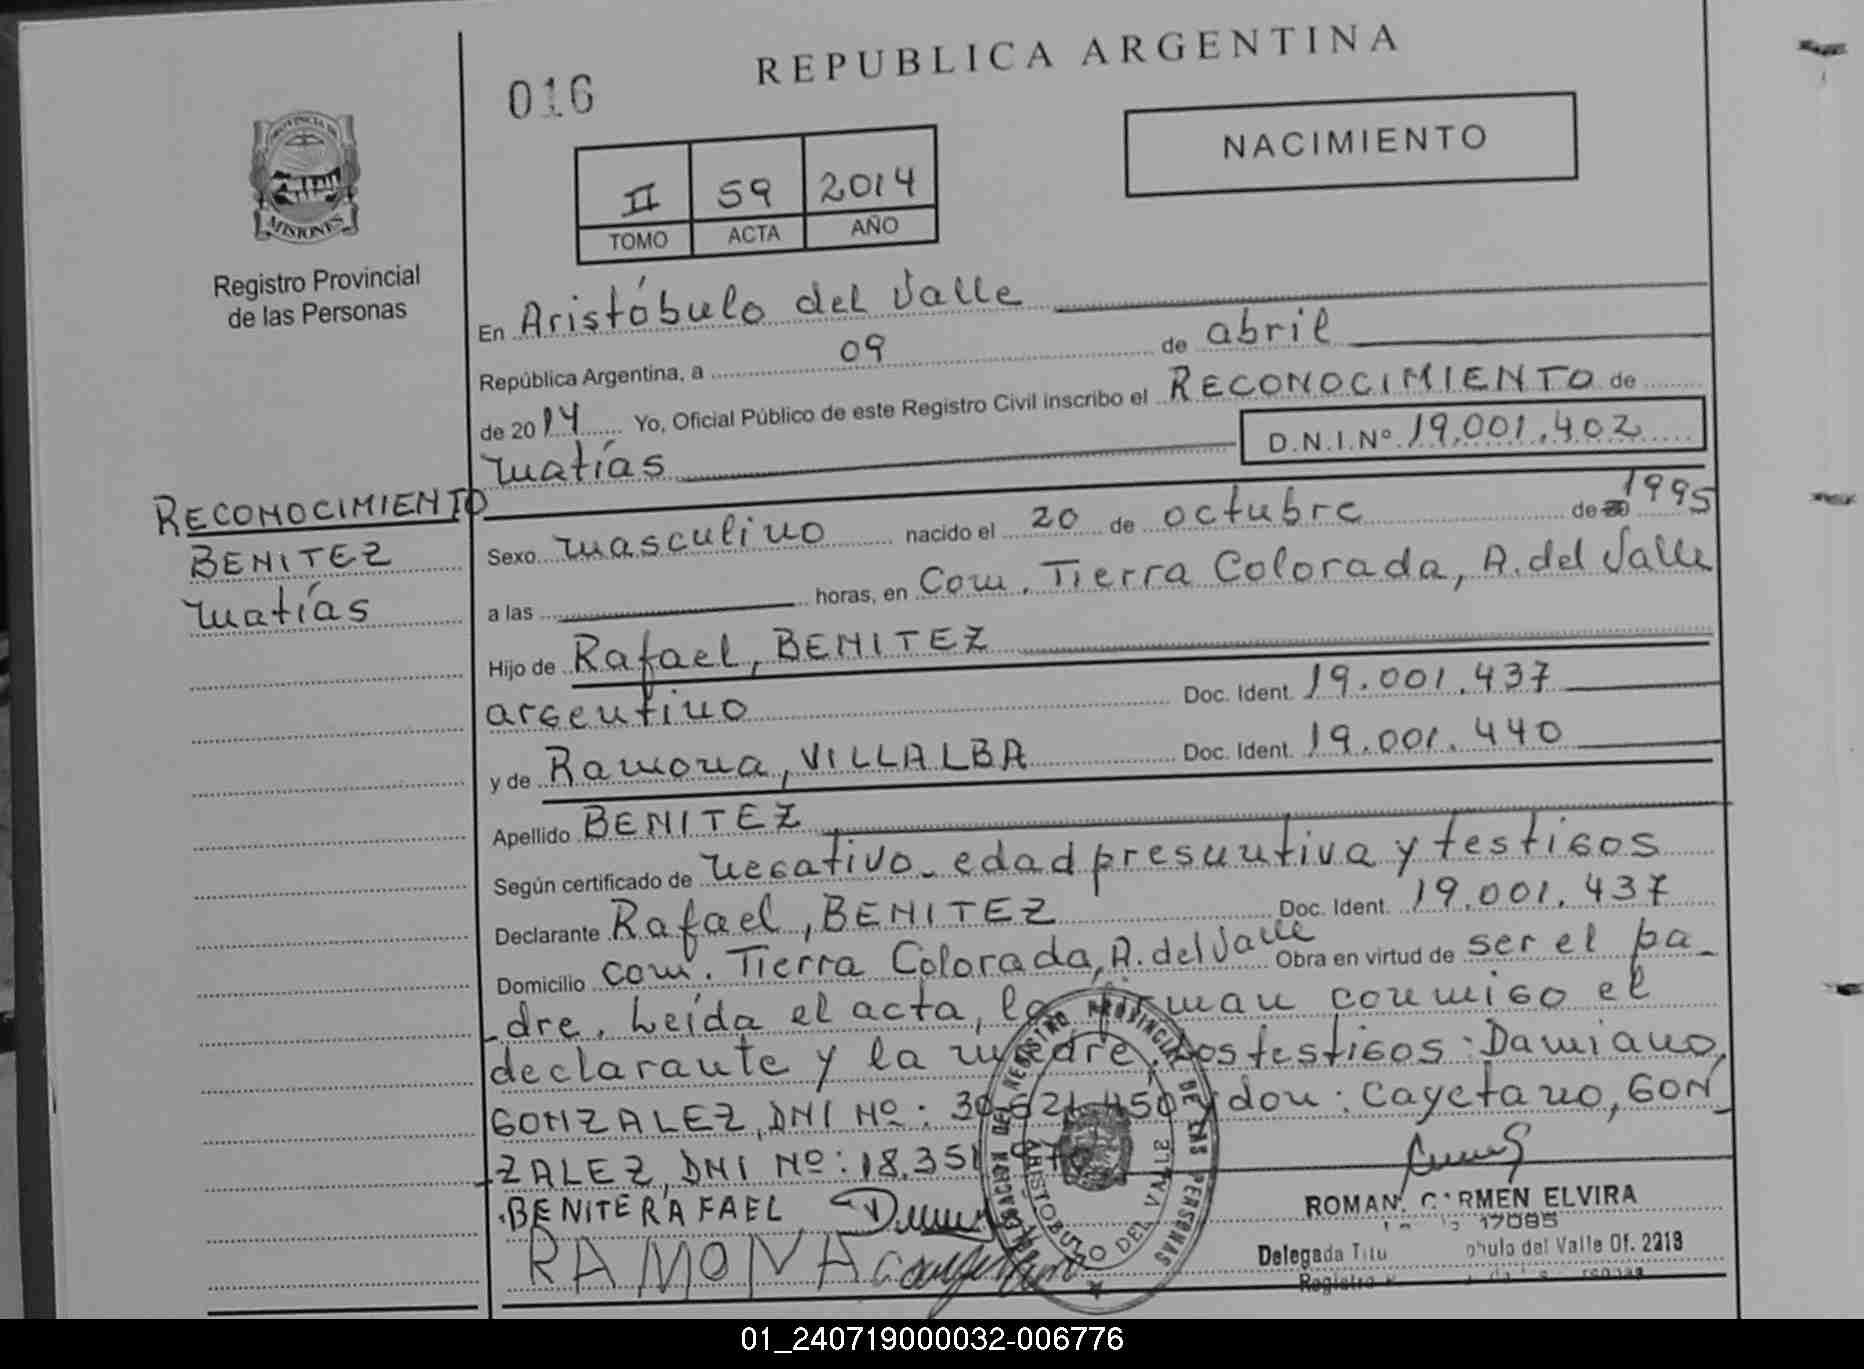 REPUBLICA ARGENTINA
016
NACIMIENTO
II 59 2014
TOMO ACTA AÑO
PROVINCIA DE
MISIONES
Registro Provincial
de las Personas
En Aristóbulo del Valle
República Argentina, a 09 de abril
de 2014 Yo, Oficial Público de este Registro Civil inscribo el RECONOCIMIENTO de
Matías D.N.I.Nº 19.001.402
RECONOCIMIENTO
BENITEZ
Matías
Sexo masculino nacido el 20 de octubre de 1995
a las horas, en Com. Tierra Colorada, A. del Valle
Hijo de Rafael, BENITEZ
argentino Doc. Ident. 19.001.437
y de Ramona, VILLALBA Doc. Ident. 19.001.440
Apellido BENITEZ
Según certificado de negativo. edad presuntiva y testigos
Declarante Rafael, BENITEZ Doc. Ident. 19.001.437
Domicilio Com. Tierra Colorada, A. del Valle Obra en virtud de ser el pa-
-dre. Leída el acta, la firman conmigo el
declarante y la madre. Los testigos: Damiano,
GONZALEZ, DNI Nº: 30.621.450 y don: Cayetano, GON-
-ZALEZ, DNI Nº: 18.351
BENITE RAFAEL
RAMONA
REGISTRO PROVINCIAL DE LAS PERSONAS
ARISTOBULO DEL VALLE
ROMAN, CARMEN ELVIRA
17085
Delegada Titu obulo del Valle Of. 2213
01_240719000032-006776